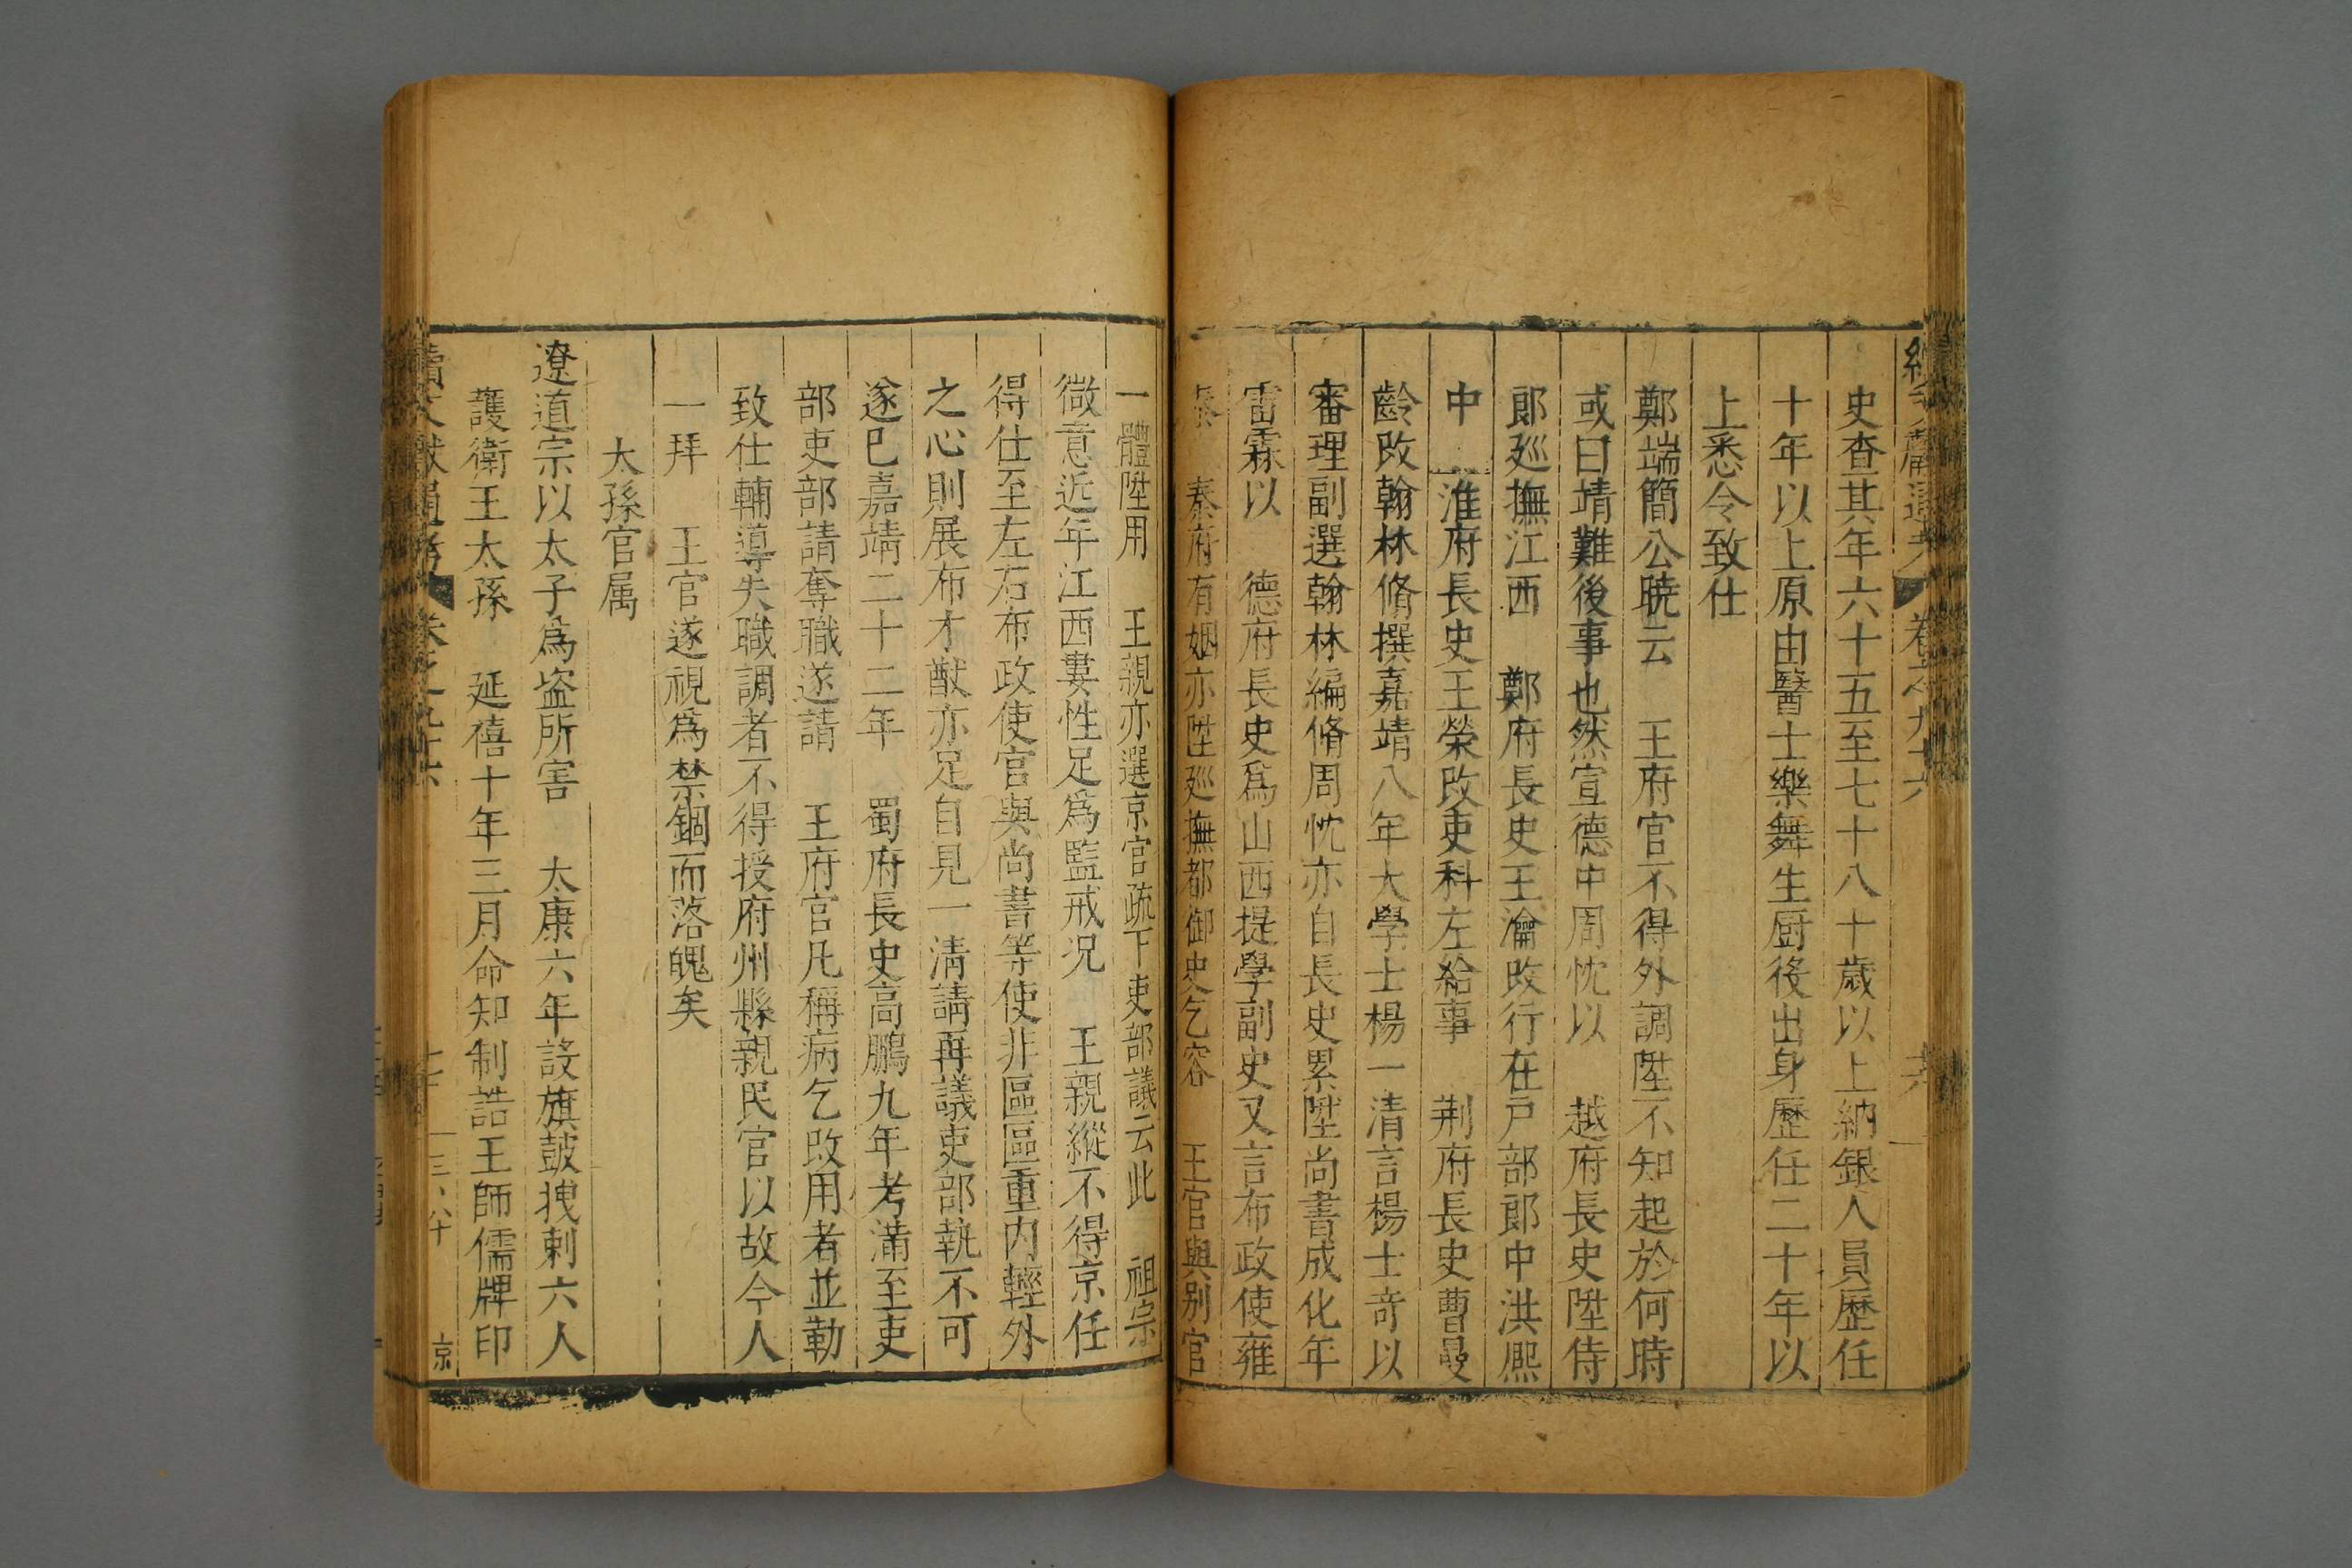 史查其年六十五至七十八十歲以上納銀人員歷任
十年以上原由醫士樂舞生厨役出身歷任二十年以
上悉令致仕
鄭端簡公曉云　王府官不得外調陞不知起於何時
或曰靖難後事也然宣德中周忱以　越府長史陞侍
郎廵撫江西　鄭府長史王瀹改行在戸部郎中洪熈
中　淮府長史王榮改吏科左給事　荆府長史曹
齡改翰林脩撰嘉靖八年大學士楊一清言楊士竒以
審理副選翰林編脩周忱亦自長史累陞尚書成化年
雷霖以　德府長史爲山西提學副史又言布政使雍
泰　秦府有姻亦陞廵撫都御史乞容　王官與别官
一體陞用　王親亦選京官疏下吏部議云此　祖宗
微意近年江西婁性足爲監戒况　王親縱不得京任
得仕至左右布政使官與尚書等使非區區重内輕外
之心則展布才猷亦足自見一清請再議吏部執不可
遂巳嘉靖二十二年　蜀府長史高鵬九年考滿至吏
部吏部請奪職遂請　王府官凡稱病乞改用者並勒
致仕輔導失職調者不得授府州縣親民官以故今人
一拜　王官遂視爲禁錮而落魄矣
太孫官属
遼道宗以太子爲盗所害　太康六年設旗鼓拽剌六人
護衛王太孫　延禧十年三月命知制誥王師儒牌印
續文獻通考　卷之九十六